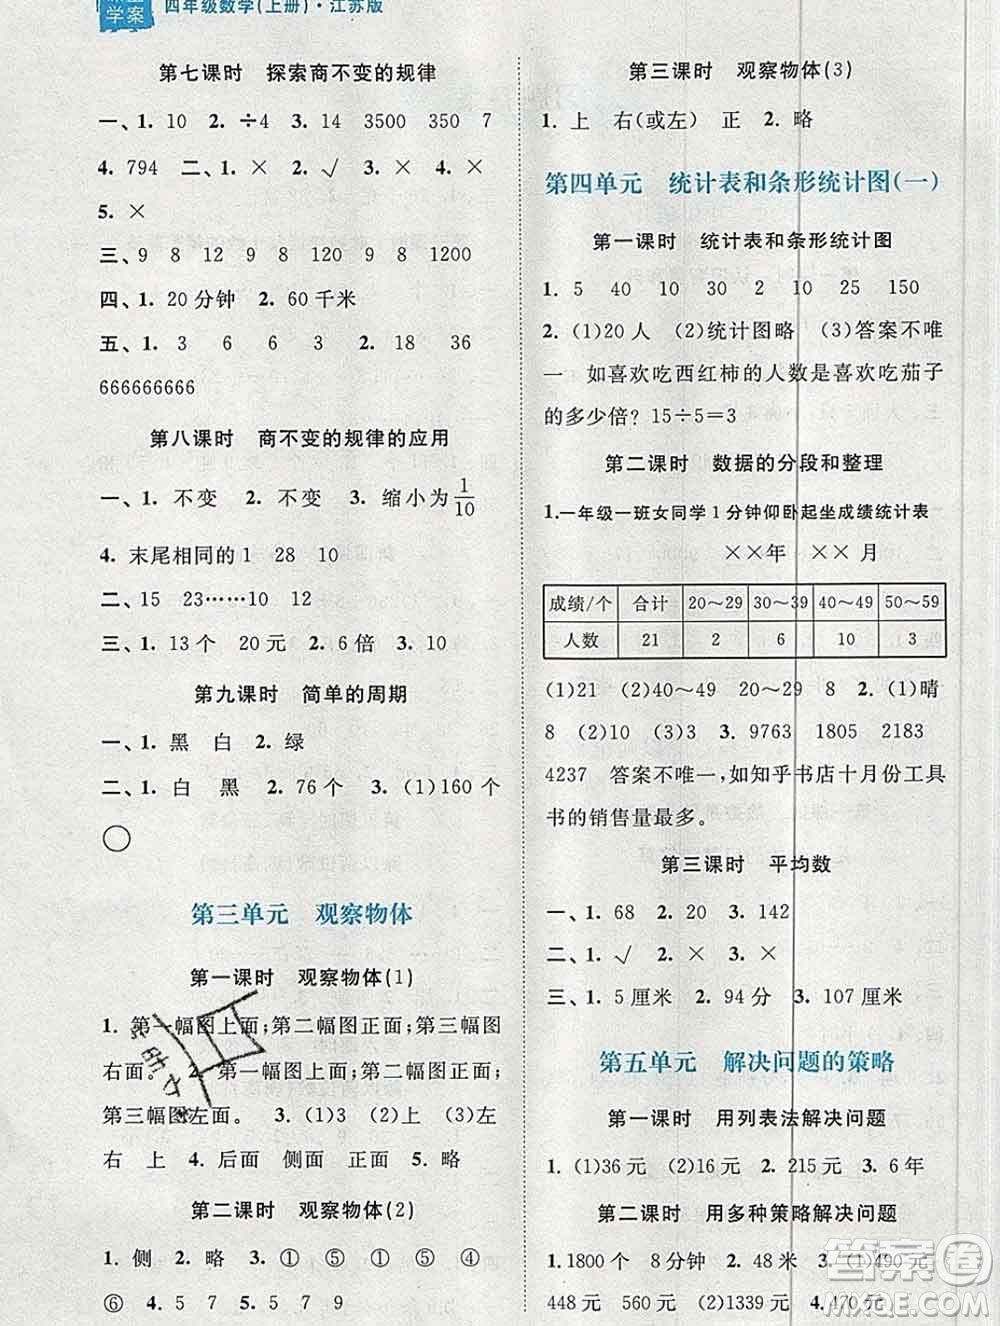 学案 四年级数学(上册)·江苏版
第七课时 探索商不变的规律
一、1. 10 2. ÷4 3. 14 3500 350 7
4. 794 二、1. × 2. √ 3. × 4. ×
5. ×
三、9 8 12 9 8 9 1200
四、1. 20分钟 2. 60千米
五、1. 3 6 6 3 2. 18 36
666666666
第八课时 商不变的规律的应用
一、1. 不变 2. 不变 3. 缩小为1/10
4. 末尾相同的1 28 10
二、15 23……10 12
三、1. 13个 20元 2. 6倍 3. 40
第九课时 简单的周期
一、1. 黑 白 2. 绿
二、1. 白 黑 2. 76个 3. (1)160个
○
第三单元 观察物体
第一课时 观察物体(1)
1. 第一幅图上面;第二幅图正面;第三幅图
右面。 2. 第一幅图上面;第二幅图正面;
第三幅图左面。 3. (1)3 (2)上 (3)左
右 上 4. 后面 侧面 正面 5. 略
第二课时 观察物体(2)
1. 侧 2. 略 3. ① ⑤ ① ⑤ ④
⑥ 4. 5 7 5. 5 7 9
第三课时 观察物体(3)
1. 上 右(或左) 正 2. 略
第四单元 统计表和条形统计图(一)
第一课时 统计表和条形统计图
1. 5 40 10 30 2 15 25 150
2. (1)20人 (2)统计图略 (3)答案不唯
一 如喜欢吃西红柿的人数是喜欢吃茄子
的多少倍? 15÷5=3
第二课时 数据的分段和整理
1.一年级一班女同学1分钟仰卧起坐成绩统计表
××年 ××月
成绩/个 合计 20～29 30～39 40～49 50～59
人数 21 2 6 10 3
(1)21 (2)40～49 20～29 8 2. (1)晴
8 (2)10 (3)2 3. 9763 1808 2183
4237 答案不唯一,如知乎书店十月份工具
书的销售量最多。
第三课时 平均数
一、1. 68 2. 20 3. 142
二、1. √ 2. × 3. ×
三、1. 5厘米 2. 94分 3. 107厘米
第五单元 解决问题的策略
第一课时 用列表法解决问题
1. (1)36元 (2)18元 2. 215元 3. 6年
第二课时 用多种策略解决问题
1.1800个 8分钟 2. 48米 3. (1)490元
448元 560元 (2)1339元 4.470元
答案圈